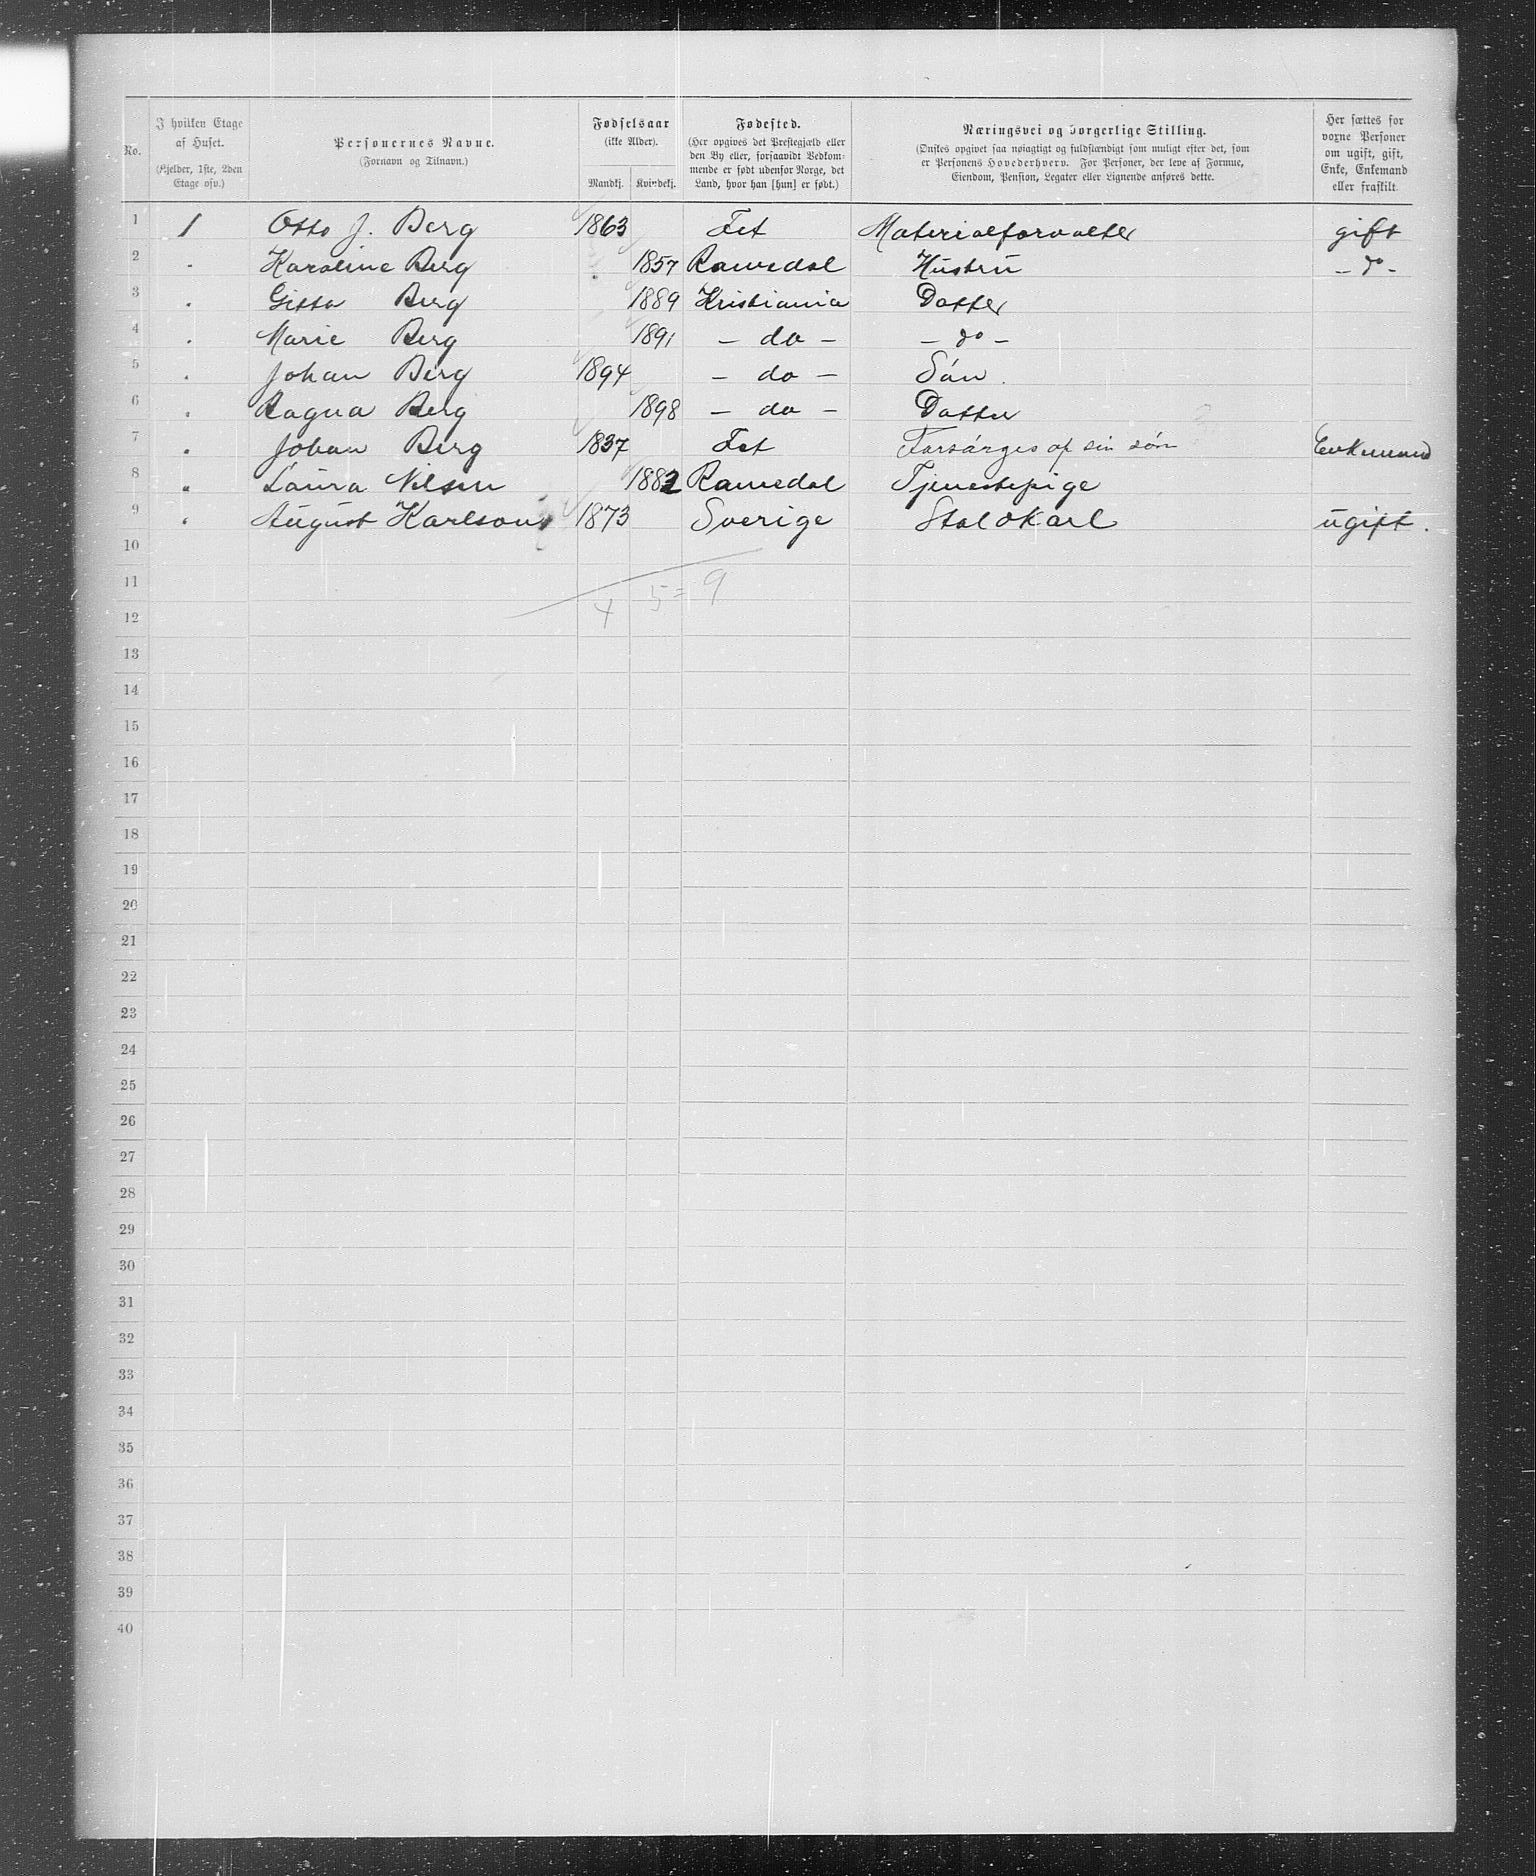 No.
I hvilken Etage af Huset.
(Kjelder, 1ste, 2den Etage osv.)
Personernes Navne.
(Fornavn og Tilnavn.)
Fødselsaar
(ikke Alder).
Mandkj. Kvindekj.
Fødested.
(Her opgives det Prestegjæld eller den By eller, forsaavidt Vedkommende er født udenfor Norge, det Land, hvor han [hun] er født.)
Næringsvei og borgerlige Stilling.
(Ønskes opgivet saa nøiagtigt og fuldstændigt som muligt efter det, som er Personens Hovederhverv. For Personer, der leve af Formue, Eiendom, Pension, Legater eller Lignende anføres dette.
Her sættes for voxne Personer om ugift, gift, Enke, Enkemand eller fraskilt
1 1 Otto J. Berg 1863 Fet Materialforvalter gift
2 " Karoline Berg 1857 Ramsdal Hustru - do -
3 " Gitta Berg 1889 Kristiania Datter
4 " Marie Berg 1891 - do - - do -
5 " Johan Berg 1894 - do - Søn.
6 " Ragna Berg 1898 - do - Datter
7 " Johan Berg 1837 Fet Forsørges af sin søn Enkemand
8 " Laura Nilsen 1882 Ramsdal Tjenestepige
9 " August Karlson 1873 Sverige Staldkarl ugift.
10
11
4 5 = 9
12
13
14
15
16
17
18
19
20
21
22
23
24
25
26
27
28
29
30
31
32
33
34
35
36
37
38
39
40